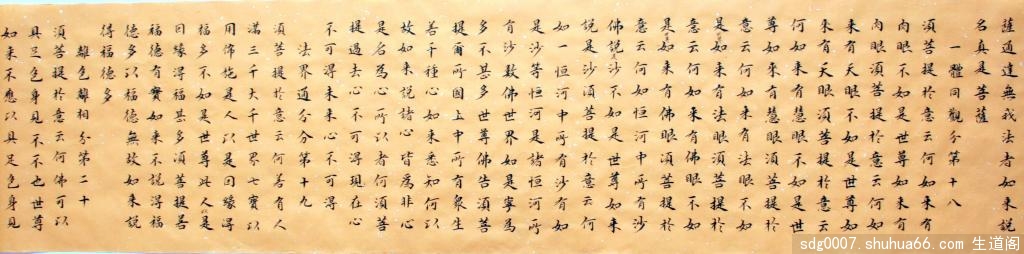 薩通達無我法者如來說
名真是菩薩
一體同觀分第十八
須菩提於意云何如來有
肉眼不如是世尊如來有
肉眼須菩提於意云何如
來有天眼不如是世尊如
來有天眼須菩提於意云
何如來有慧眼不如是世
尊如來有慧眼須菩提於
意云何如來有法眼不如
是世尊如來有法眼須菩提於
意云何如來有佛眼不如
是世尊如來有佛眼須菩提於
意云何如恒河中所有沙
佛說是沙不如是世尊如來
說是沙須菩提於意云何
如一恒河中所有沙有如
是沙等恒河是諸恒河所
有沙數佛世界如是寧為
多不甚多世尊佛告須菩
提爾所國土中所有衆生
若干種心如來悉知何以
故如來說諸心皆為非心
是名為心所以者何須菩
提過去心不可得現在心
不可得未來心不可得
法界通分分第十九
須菩提於意云何若有人
滿三千大千世界七寶以
用佈施是人以是因緣得
福多不如是世尊此人以是
因緣得福甚多須菩提若
福德有實如來不說得福
德多以福德無故如來說
得福德多
離色離相分第二十
須菩提於意云何佛可以
具足色身見不不也世尊
如来不應以具足色身見
sdg0007.shuhua66.com 生道阁